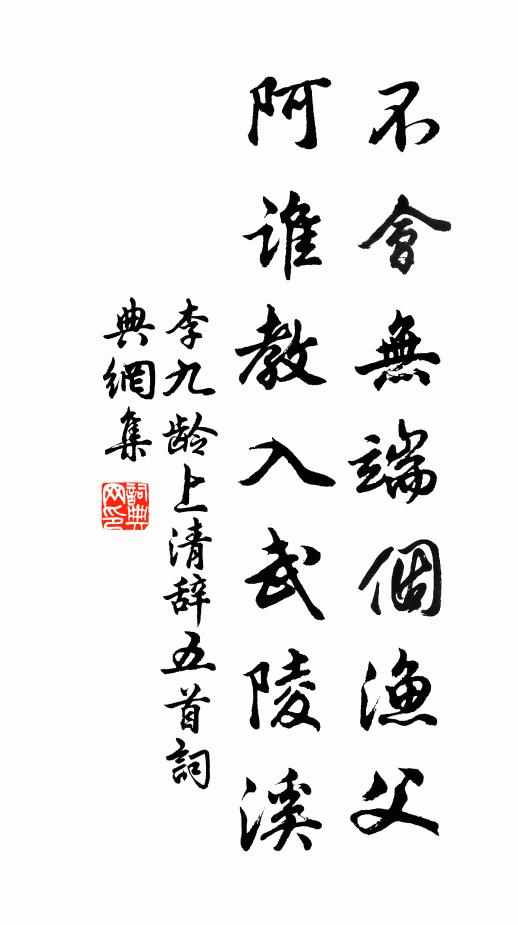 不會無端個漁父
阿誰教入武陵溪
李九龄上清辞五首詞
典網集
詞典
网印